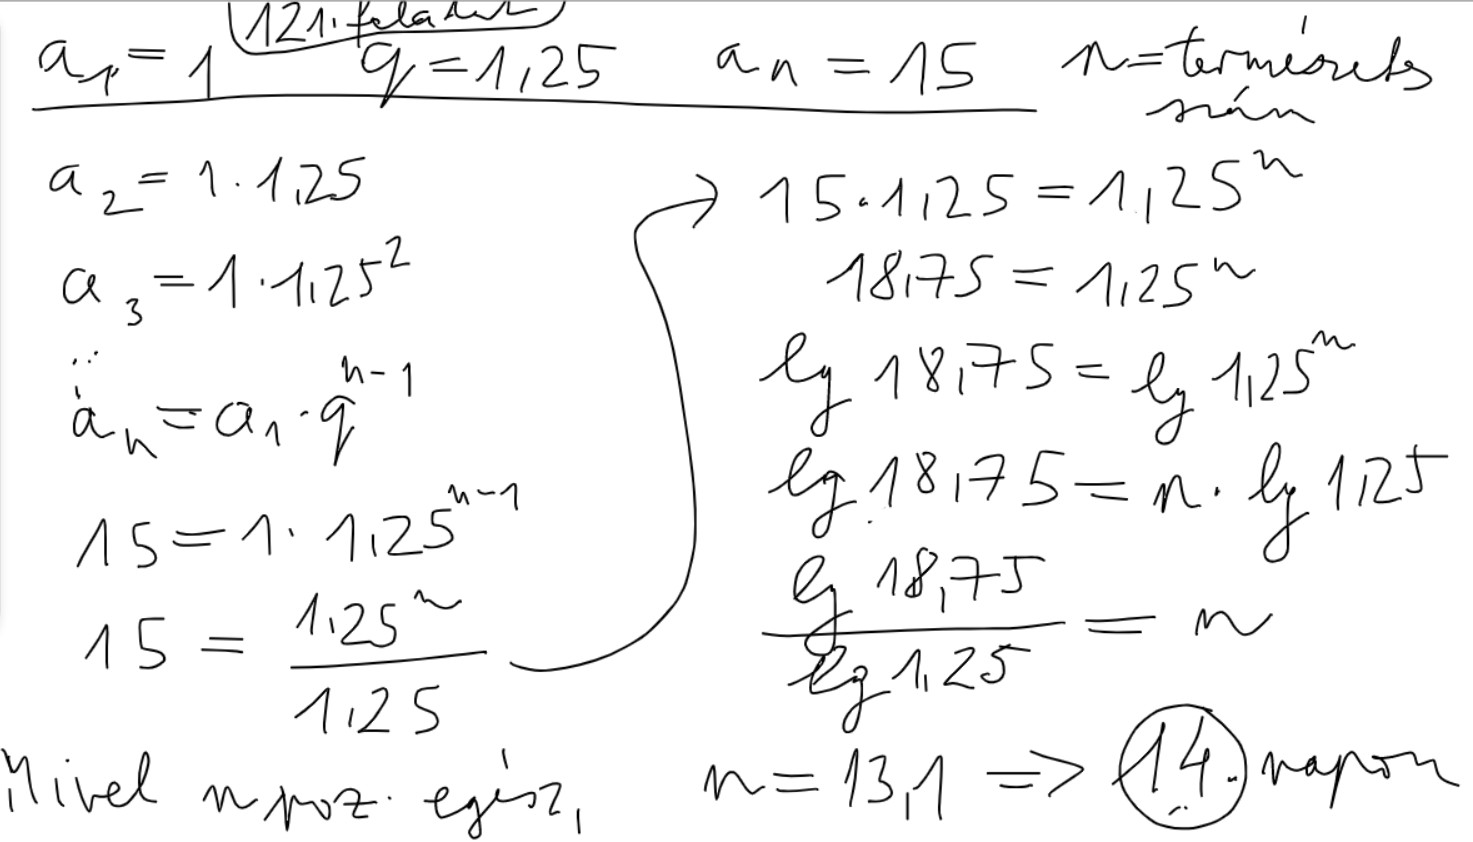 121. feladat
a₁ = 1 q = 1,25 aₙ = 15 n = természetes
szám
a₂ = 1 · 1,25
a₃ = 1 · 1,25²
aₙ = a₁ · qⁿ⁻¹
15 = 1 · 1,25ⁿ⁻¹
15 = 1,25ⁿ / 1,25
→ 15 · 1,25 = 1,25ⁿ
18,75 = 1,25ⁿ
lg 18,75 = lg 1,25ⁿ
lg 18,75 = n · lg 1,25
lg 18,75 / lg 1,25 = n
Mivel n poz. egész, n = 13,1 => 14. napon